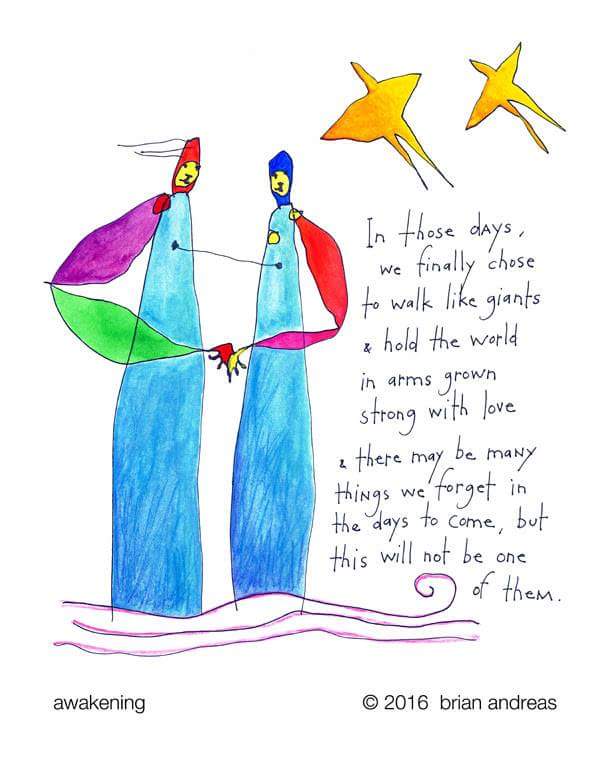 In those days,
we finally chose
to walk like giants
& hold the world
in arms grown
strong with love
& there may be many
things we forget in
the days to come, but
this will not be one
of them.
awakening
© 2016 brian andreas